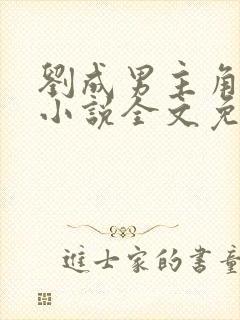 劉成男主角
小說全文免
進士家的書童